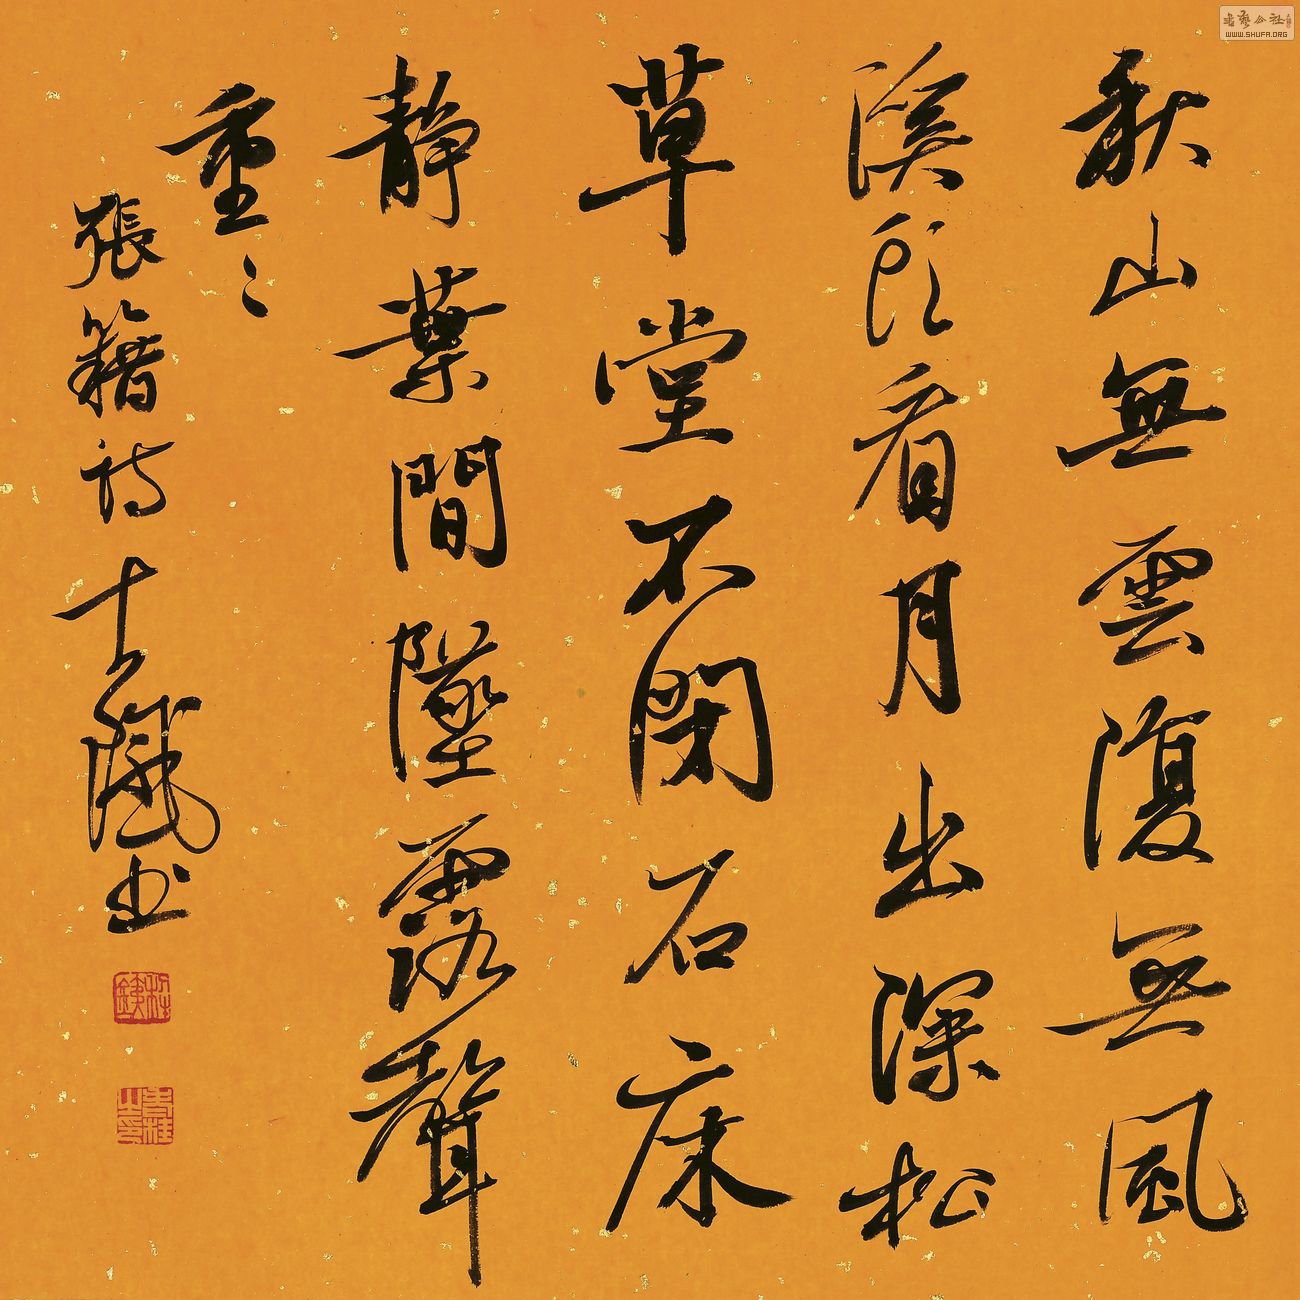 秋山無雲復無風
溪頭看月出深松
草堂不閉石床
靜葉間墜露聲
重〻
張籍詩 士鉞书
書藝公社
WWW.SHUFA.ORG